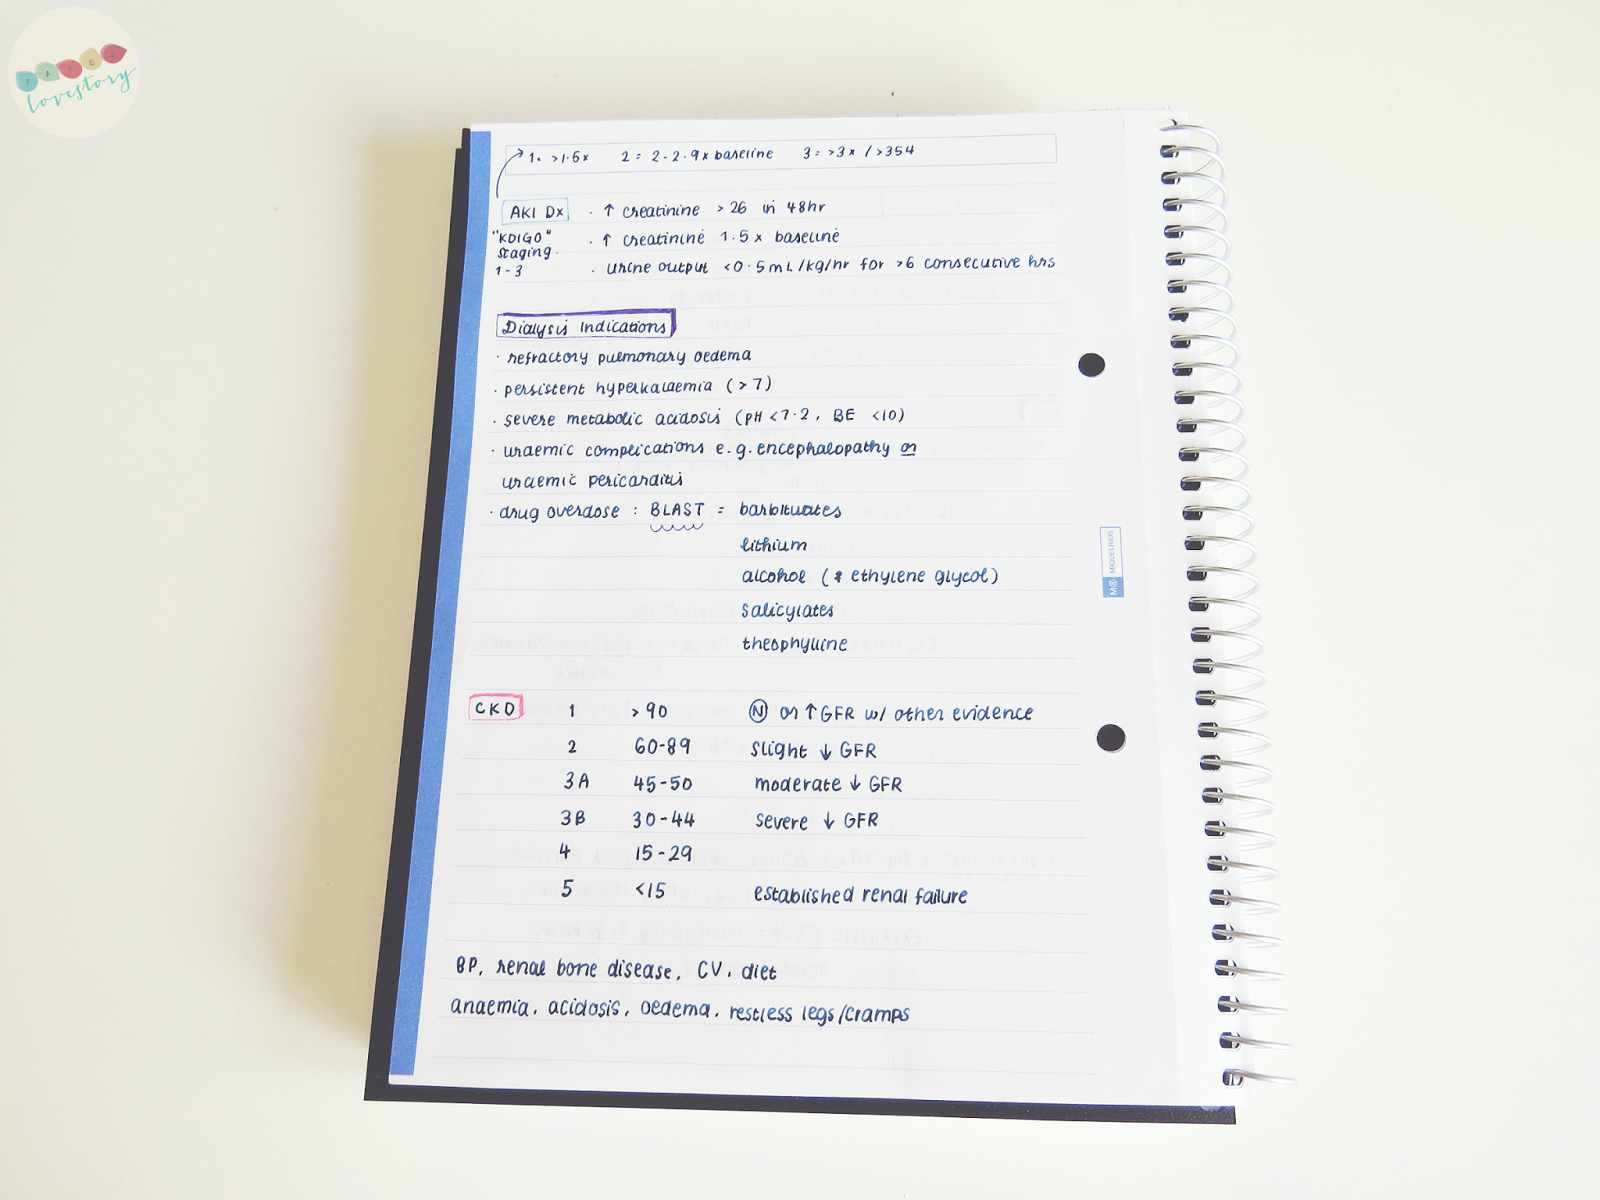 PAPER
lovestory
1. >1.5x 2 = 2-2.9x baseline 3 = >3x / >354
AKI Dx · ↑ creatinine > 26 in 48hr
"KDIGO" · ↑ creatinine 1.5 x baseline
staging.
1-3 · urine output <0.5mL/kg/hr for >6 consecutive hrs
Dialysis Indications
· refractory pulmonary oedema
· persistent hyperkalaemia (>7)
· severe metabolic acidosis (pH <7.2, BE <10)
· uraemic complications e.g. encephalopathy or
uraemic pericarditis
· drug overdose : BLAST = barbituates
lithium
alcohol (& ethylene glycol)
salicylates
theophylline
MIQUELRIUS
CKD 1 >90 (N) or ↑ GFR w/ other evidence
2 60-89 slight ↓ GFR
3A 45-50 moderate ↓ GFR
3B 30-44 severe ↓ GFR
4 15-29
5 <15 established renal failure
BP, renal bone disease, CV, diet
anaemia, acidosis, oedema, restless legs/cramps